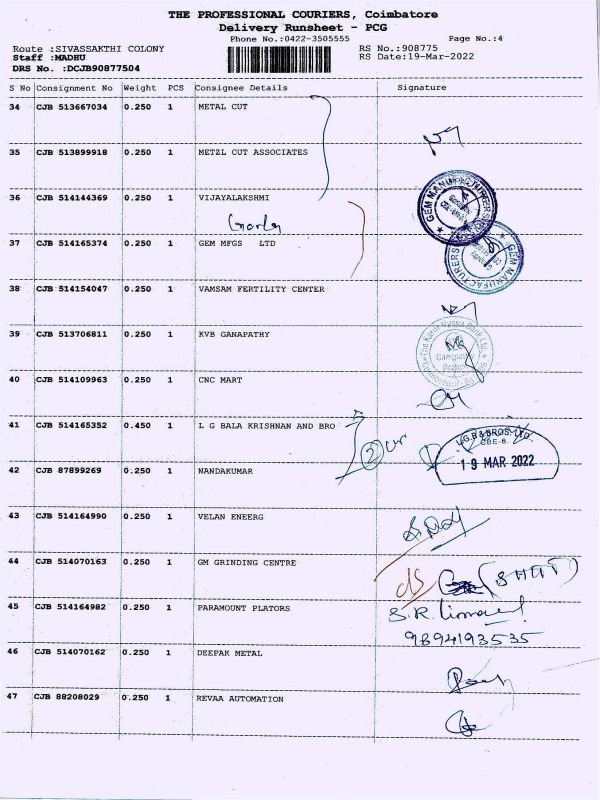 THE PROFESSIONAL COURIERS, Coimbatore
Delivery Runsheet - PCG
Phone No.:0422-3505555 Page No.:4
Route :SIVASSAKTHI COLONY RS No.:908775
Staff :MADHU RS Date:19-Mar-2022
DRS No. :DCJB90877504
S No Consignment No Weight PCS Consignee Details Signature
34 CJB 513667034 0.250 1 METAL CUT
35 CJB 513899918 0.250 1 METZL CUT ASSOCIATES
36 CJB 514144369 0.250 1 VIJAYALAKSHMI
GEM MANUFACTURERS
37 CJB 514165374 0.250 1 GEM MFGS LTD
GEM MANUFACTURERS
38 CJB 514154047 0.250 1 VAMSAM FERTILITY CENTER
39 CJB 513706811 0.250 1 KVB GANAPATHY
The Karur Vysya Bank Ltd.
Ganapathy
Branch
40 CJB 514109963 0.250 1 CNC MART
41 CJB 514165352 0.450 1 L G BALA KRISHNAN AND BRO
L.G.B & BROS. LTD.
CBE-6.
19 MAR 2022
42 CJB 87899269 0.250 1 NANDAKUMAR
43 CJB 514164990 0.250 1 VELAN ENEERG
44 CJB 514070163 0.250 1 GM GRINDING CENTRE
45 CJB 514164982 0.250 1 PARAMOUNT PLATORS
9894193535
46 CJB 514070162 0.250 1 DEEPAK METAL
47 CJB 88208029 0.250 1 REVAA AUTOMATION